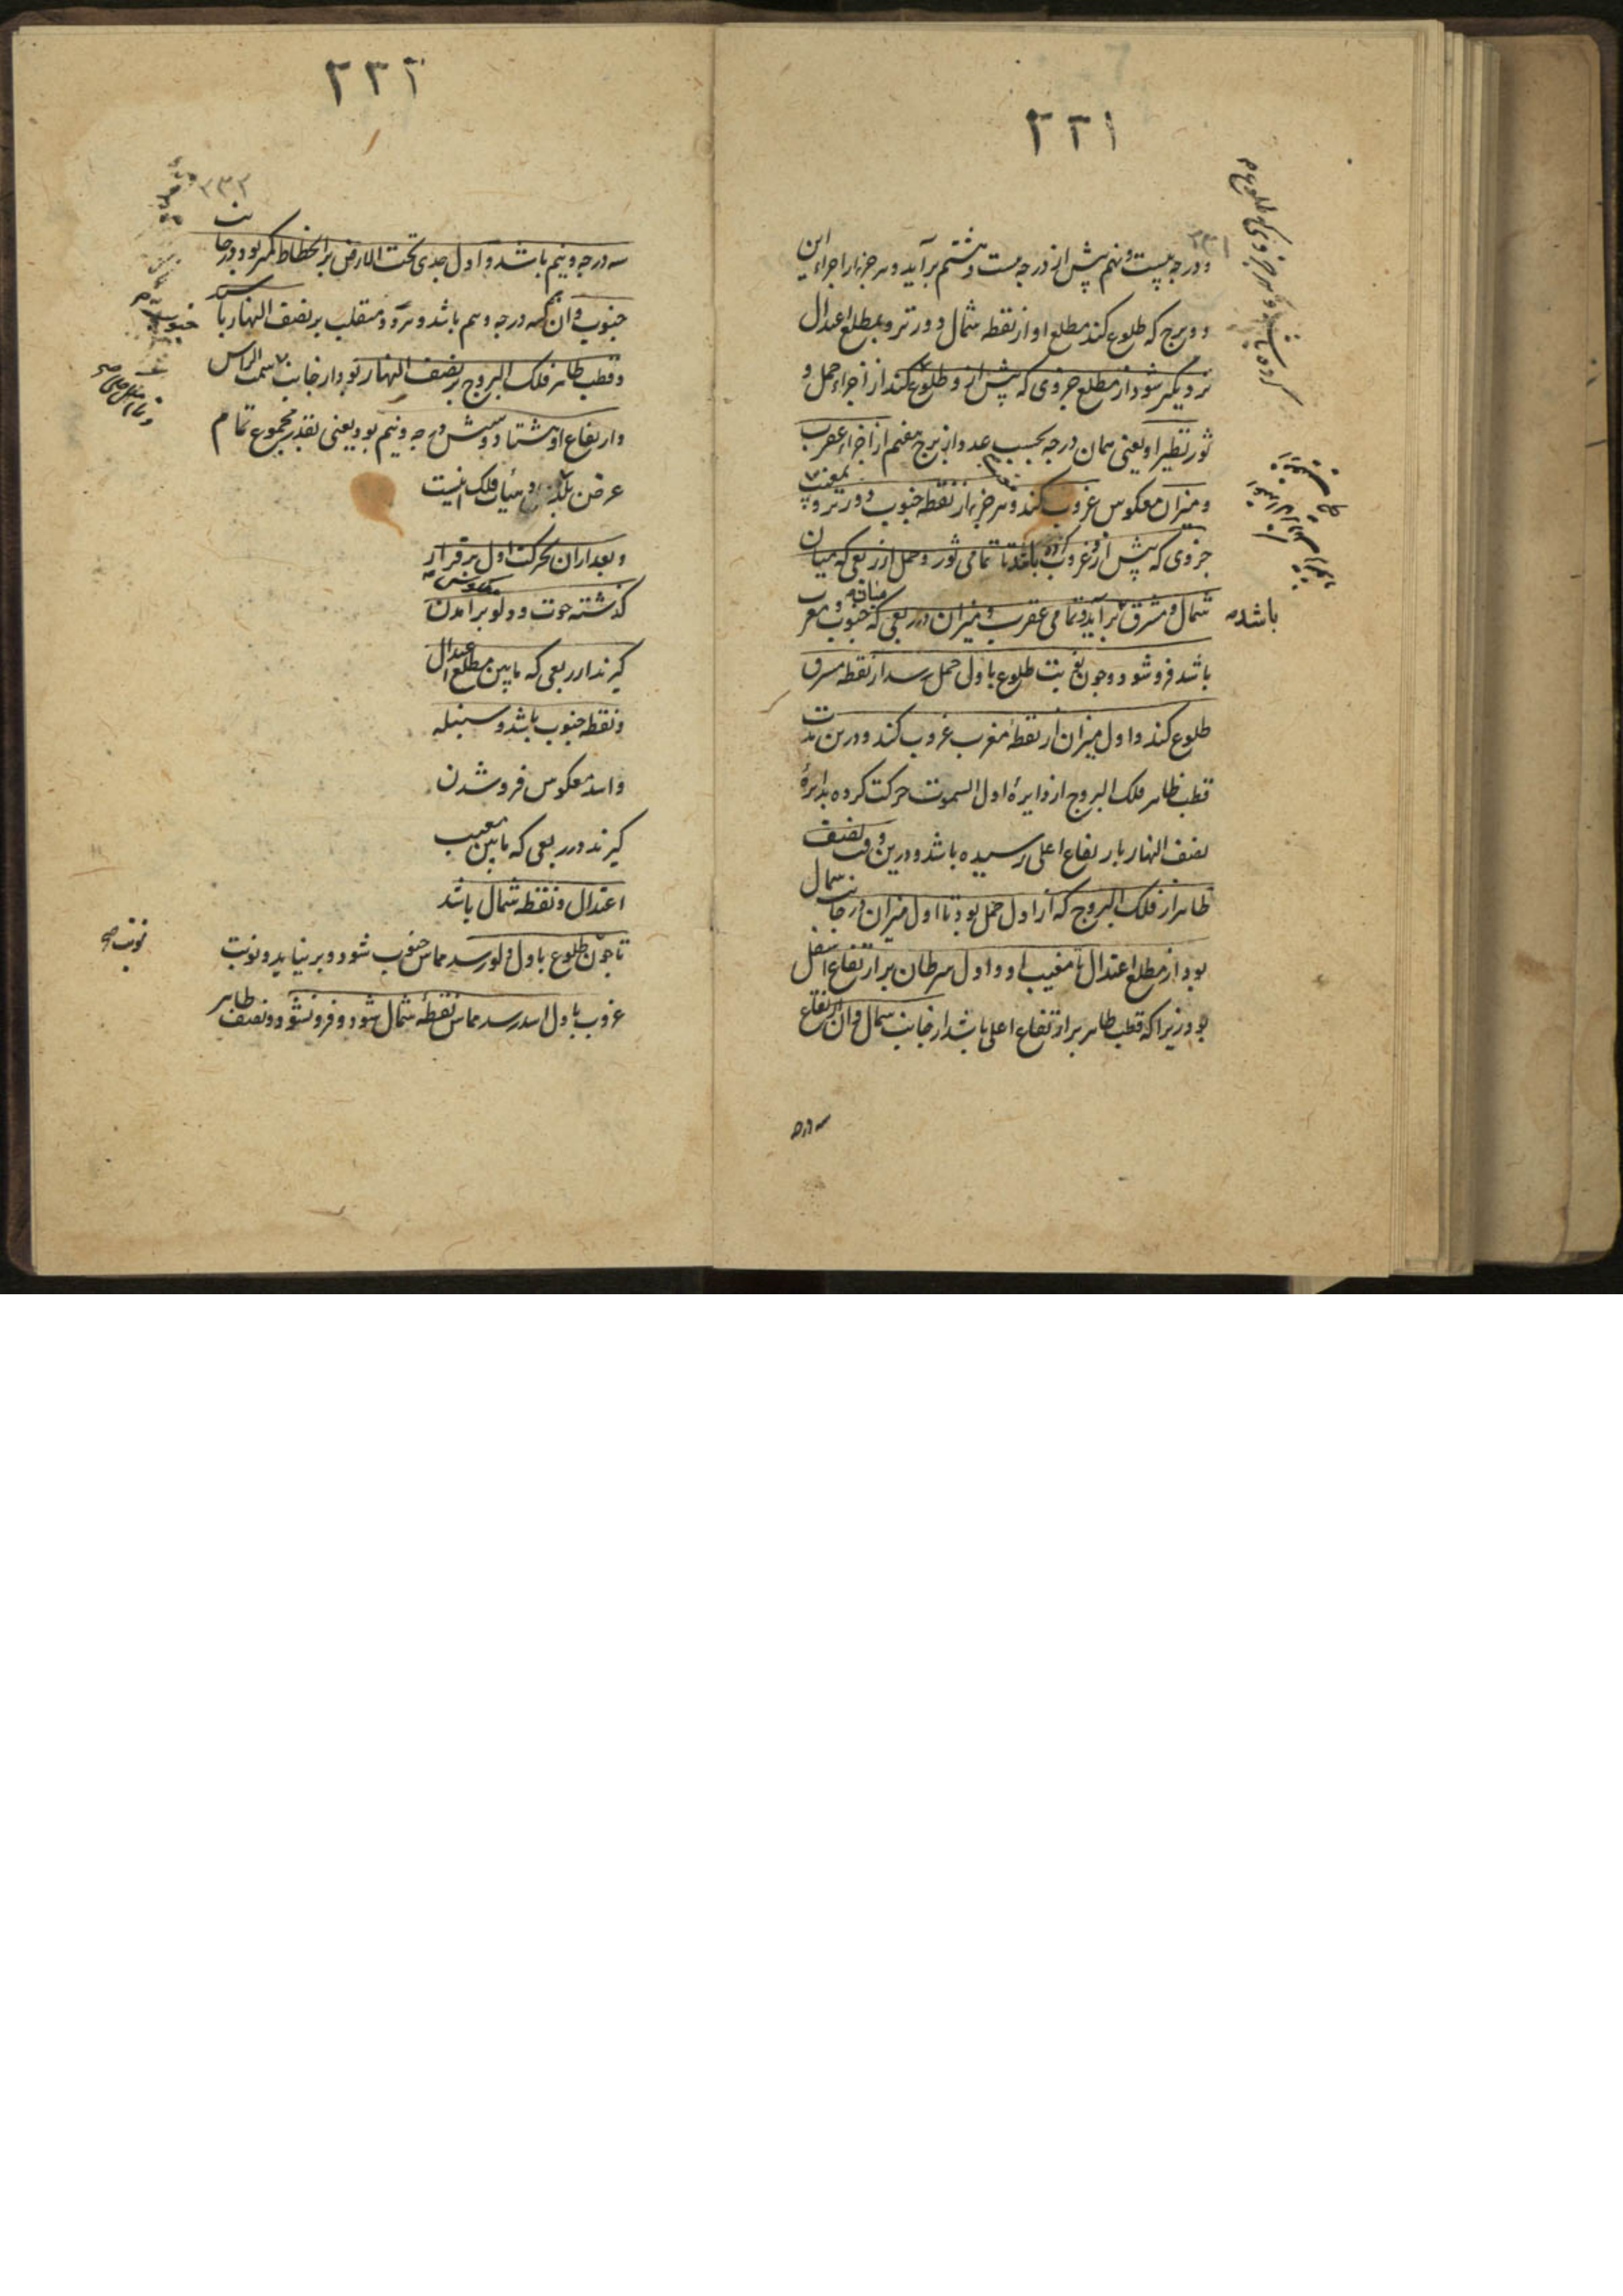 ۲۳۱
۲۳۱
و درجه بیست و نهم پیش از درجه بیست و هشتم برآید و هر جزء از اجزاء این
دو برج که طلوع کند مطلع او از نقطه شمال دورتر و بمطلع اعتدال
نزدیکتر شود از مطلع جزوی که پیش از و طلوع کند از اجزاء حمل و
ثور نظیر او یعنی همان درجه بحسب عدد از برج هفتم از اجزاء عقرب
و میزان معکوس غروب کند و هر جزء از نقطه جنوب دورتر و بمغیب
جزوی که پیش از و غروب کرده باشد تا تمامی ثور و حمل از ربعی که میان
شمال و مشرق برآید و تمامی عقرب و میزان در ربعی که میانه جنوب و مغرب
باشد
باشد فرو شود و چون نوبت طلوع باول حمل رسد از نقطه مشرق
طلوع کند و اول میزان از نقطهٔ مغرب غروب کند و درین مدت
قطب ظاهر فلک البروج از دایرهٔ اول السموت حرکت کرده بدایرهٔ
نصف النهار بارتفاع اعلی رسیده باشد و درین وقت نصف
ظاهر از فلک البروج که از اول حمل بود تا اول میزان در جانب شمال
بود از مطلع اعتدال تا مغیب او و اول سرطان بر ارتفاع اسفل
بود زیرا که قطب ظاهر بر ارتفاع اعلی باشد از جانب شمال و آن ارتفاع
سه درجه
۲۳۲
۲۳۲
سه درجه و نیم باشد و اول جدی تحت الارض بر انحطاط کمتر بود در جانب
جنوب و آن هم سه درجه و نیم باشد و هر دو منقلب بر نصف النهار باشد
جنوب
و قطب ظاهر فلک البروج بر نصف النهار بود از جانب سمت الراس
و ارتفاع او هشتاد و شش درجه و نیم بود یعنی بقدر مجموع تمام
عرض بلد و هیأت فلک اینست
و بعد از آن بحرکت اول بر قرار
گذشته حوت و دلو معکوس برآمدن
گیرند از ربعی که مابین مطلع اعتدال
و نقطه جنوب باشد و سنبله
و اسد معکوس فرو شدن
گیرند در ربعی که مابین مغیب
اعتدال و نقطه شمال باشد
تا چون طلوع باول دلو رسد مماس جنوب شود و بر نیاید و نوبت
نوبت
غروب باول اسد رسد مماس نقطهٔ شمال شود و فرو نشود و نصف ظاهر